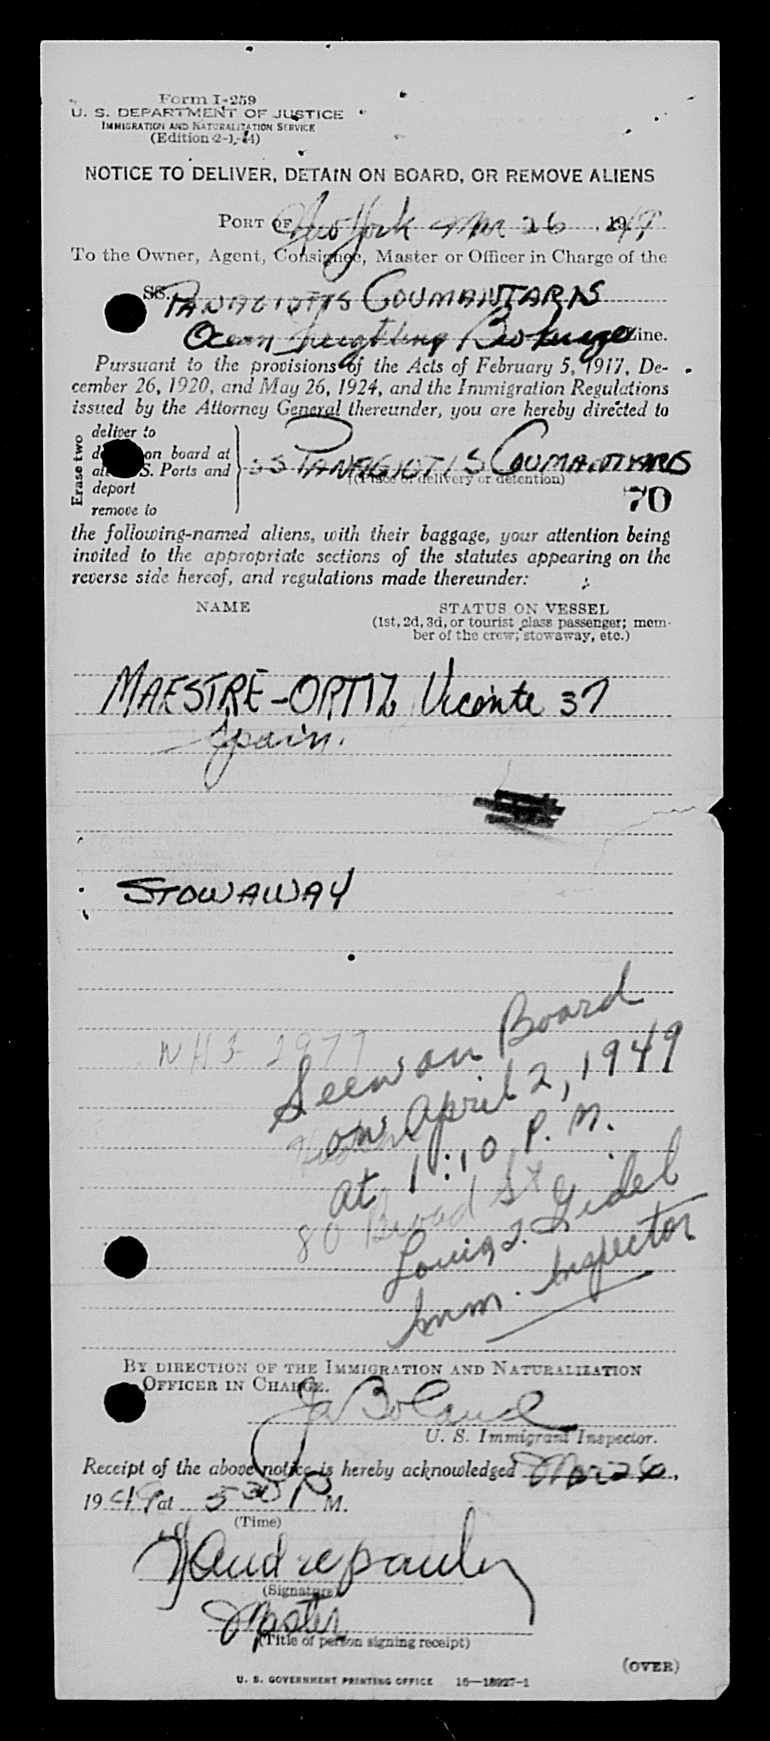 Form I-259
U. S. DEPARTMENT OF JUSTICE
IMMIGRATION AND NATURALIZATION SERVICE
(Edition 2-1-44)
NOTICE TO DELIVER, DETAIN ON BOARD, OR REMOVE ALIENS
PORT OF New York Mar 26, 1949
To the Owner, Agent, Consignee, Master or Officer in Charge of the
SS. PANAGIOTIS COUMANTARIS
Ocean Freighting Brokerage Line.
Pursuant to the provisions of the Acts of February 5, 1917, De-
cember 26, 1920, and May 26, 1924, and the Immigration Regulations
issued by the Attorney General thereunder, you are hereby directed to
Erase two
deliver to
on board at
S. Ports and
deport
remove to
SS PANAGIOTIS COUMANTARIS
(Place of delivery or detention)
70
the following-named aliens, with their baggage, your attention being
invited to the appropriate sections of the statutes appearing on the
reverse side hereof, and regulations made thereunder:
NAME STATUS ON VESSEL
(1st, 2d, 3d, or tourist class passenger; mem-
ber of the crew; stowaway, etc.)
MAESTRE-ORTIZ Vicente 37
Spain.
STOWAWAY
WH3-2977
Seen on Board
on April 2, 1949
at 1:10 P.M.
80 Broad St
Louis I. Gidel
Imm. Inspector
BY DIRECTION OF THE IMMIGRATION AND NATURALIZATION
OFFICER IN CHARGE.
Ja Boland
U. S. Immigrant Inspector.
Receipt of the above notice is hereby acknowledged Mar 26,
1949 at 5 30 P M.
(Time)
(Signature)
Master
(Title of person signing receipt)
(OVER)
U. S. GOVERNMENT PRINTING OFFICE 16—18927-1